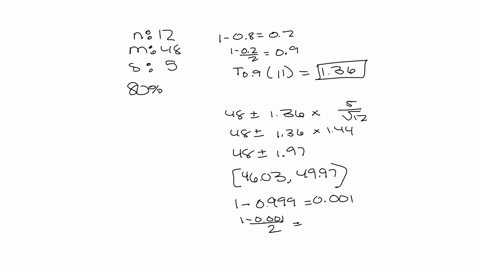 n: 12
m: 48
s: 5
80%
1 - 0.8 = 0.2
1 - 0.2/2 = 0.9
T0.9 (11) = 1.36
48 ± 1.36 × 5/√12
48 ± 1.36 × 1.44
48 ± 1.97
[46.03, 49.97)
1 - 0.999 = 0.001
1 - 0.001/2 =